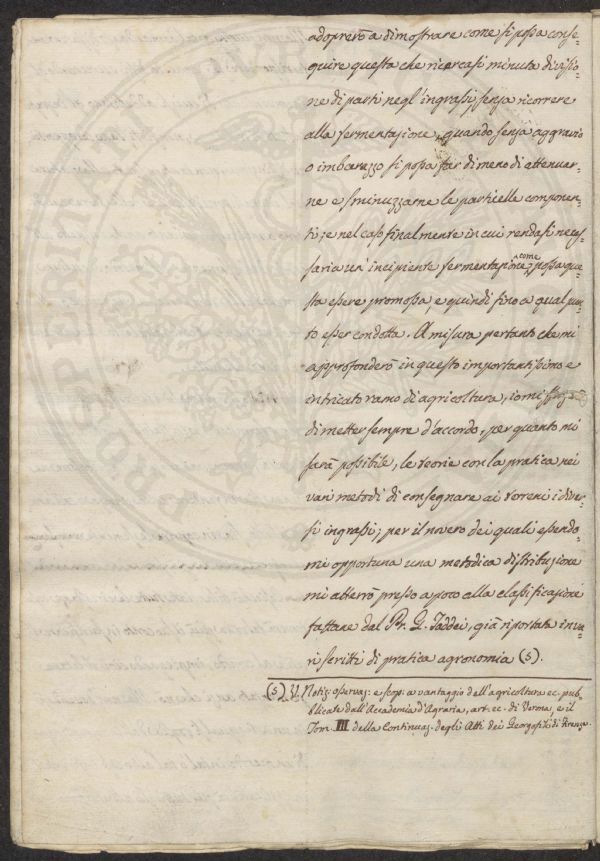 adoprerò a dimostrare come si possa conse-
guire questa che ricercasi minuta divisio-
ne di parti negl'ingrassi, senza ricorrere
alla fermentazione, quando senza aggravio
o imbarazzo si possa far di meno di attenuar-
ne e sminuzzarne le particelle componen-
ti; e nel caso finalmente in cui rendasi neces-
saria un'incipiente fermentazione, come possa que-
sta essere promossa, e quindi fino a qual pun-
to esser condotta. A misura pertanto che mi
approfonderò in questo importantissimo e
intricato ramo di agricoltura, io mi
di metter sempre d'accordo, per quanto mi
sarà possibile, le teorie con la pratica nei
vari metodi di consegnare ai terreni i diver-
si ingrassi; per il novero dei quali essendo-
mi opportuna una metodica distribuzione
mi atterrò presso a poco alla classificazione
fattane dal Pr. G. Taddei, già riportata in va-
ri scritti di pratica agronomia (5).
(5) V. Notiz: osservaz: e scop: a vantaggio dell'agricoltura ec. pub-
blicate dall'Accademia d'Agraria, art. ec. di Verona, e il
Tom. III della Continuaz. degli Atti dei Georgofili di Firenze.